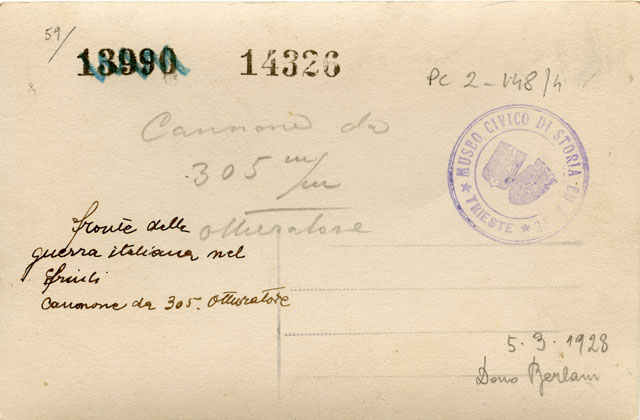 59/
13990 14326
PC 2-148/4
Cannone da
305 m/m
otturatore
MUSEO CIVICO DI STORIA ED
★ TRIESTE ★
fronte della
guerra italiana nel
friuli
Cannone da 305. Otturatore
5.3.1928
Dono Berlam